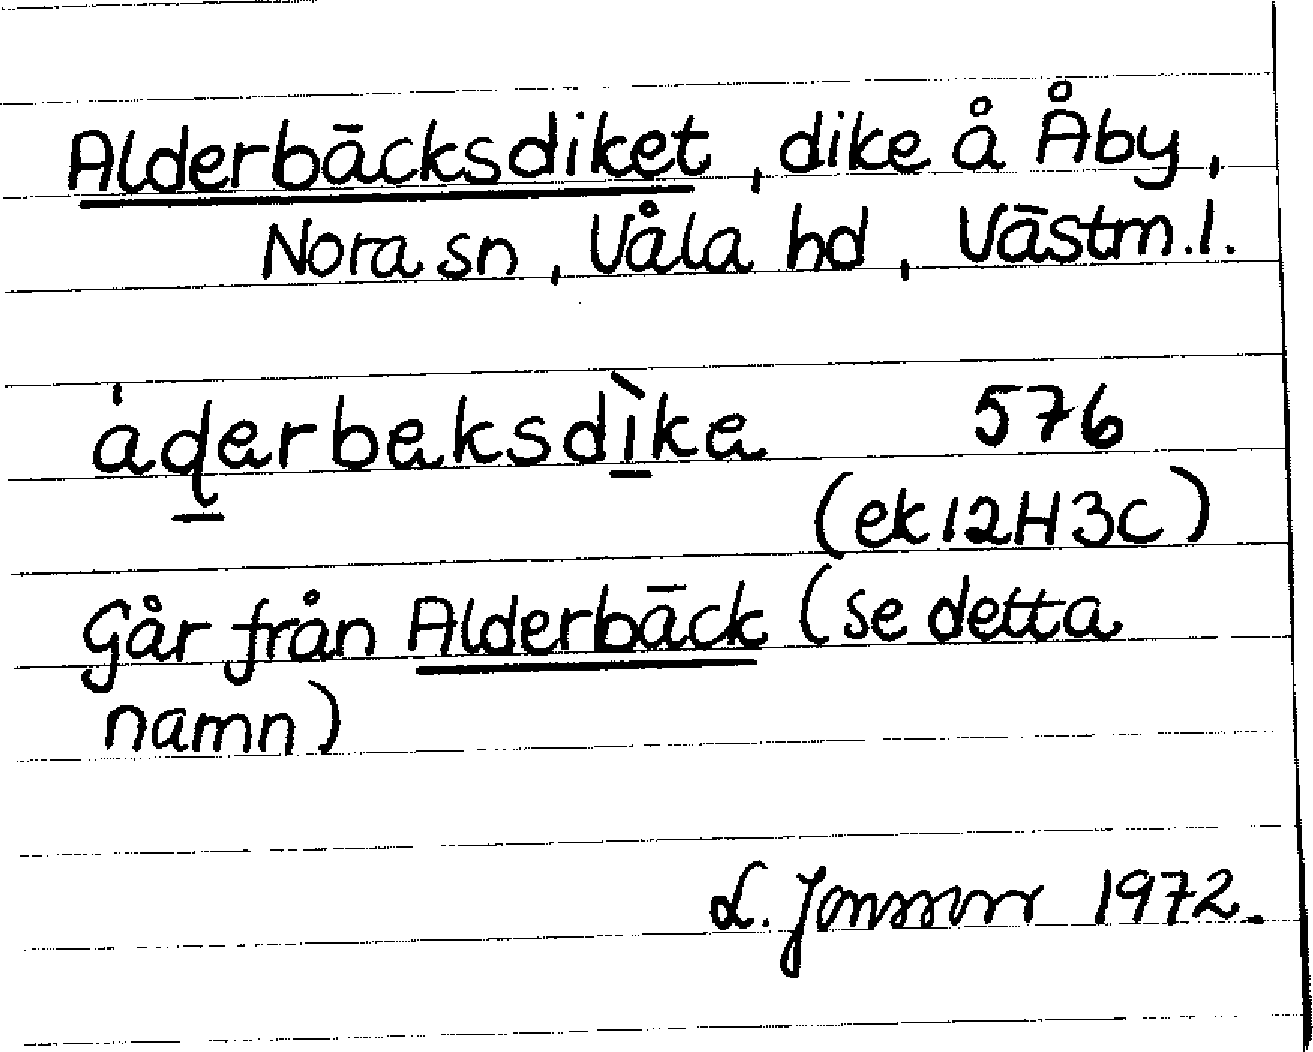 Alderbäcksdiket, dike å Åby,
Nora sn, Våla hd, Västm.l.
áɖerbeksdìke 576
(ek 12H3C)
Går från Alderbäck (se detta
namn)
L. Jonsson 1972.